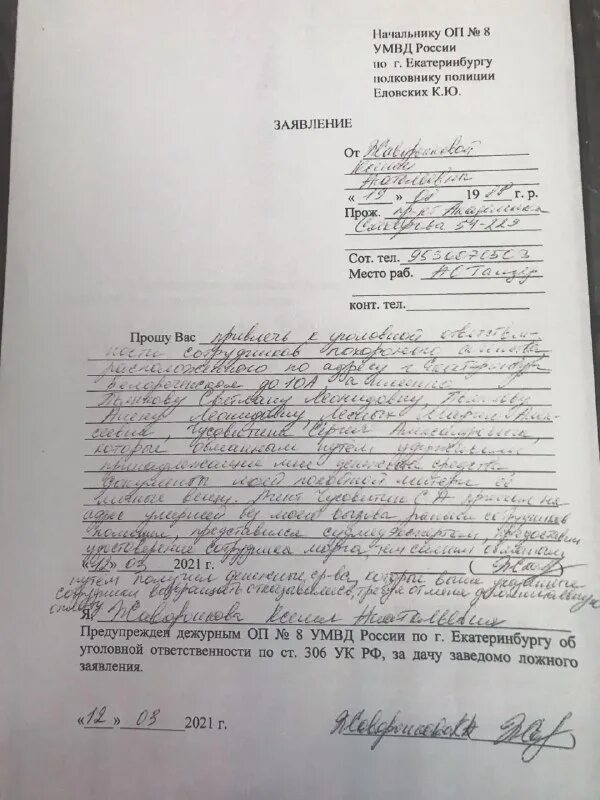 Начальнику ОП № 8
УМВД России
по г. Екатеринбургу
полковнику полиции
Еловских К.Ю.
ЗАЯВЛЕНИЕ
От Жаворонковой
Ксении
Анатольевны
« 19 » 1988 г. р.
Прож. пр-кт Академика
Сахарова 57-229
Сот. тел. 9530070503
Место раб. АО
конт. тел.
Прошу Вас привлечь к уголовной ответствен-
ности сотрудников похоронной
расположенного по адресу г. Екатеринбург
Белореченская до 10А, а именно
Светлану Леонидовну,
Алену Леонидовну,
Чусовитина Сергея Александровича,
которые обманным путем удерживали
принадлежащие мне денежные средства,
документы моей покойной матери, её
личные вещи. Агент Чусовитин С.А. пришел на
адрес умершей без моего вызова раньше сотрудников
полиции, представился судмедэкспертом, предоставил
удостоверение сотрудника морга, тем самым обманным
«12» 03 2021 г.
путем получил денежные ср-ва, которые выше указанные
сотрудники возвращать отказывались, требуя отмене
оплату
Я, Жаворонкова Ксения Анатольевна
Предупрежден дежурным ОП № 8 УМВД России по г. Екатеринбургу об
уголовной ответственности по ст. 306 УК РФ, за дачу заведомо ложного
заявления.
«12» 03 2021 г.
Жаворонкова К.А.